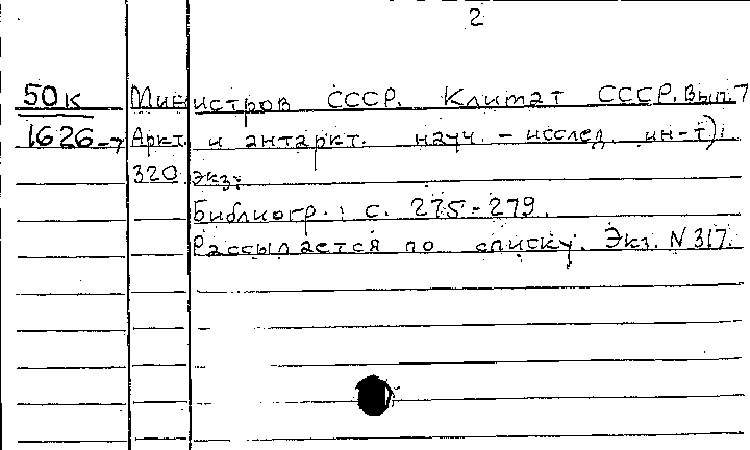 2
50к Министров СССР. Климат СССР. Вып. 7
1626-7 Аркт. и антаркт. науч. - исслед. ин-т).
320 экз.
Библиогр.: с. 275-279.
Рассылается по списку. Экз. N 317.